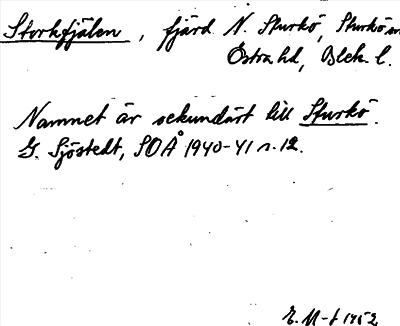 Storkfjälen, fjärd N. Sturkö, Sturkö sn
Östra hd, Blek. l.
Namnet är sekundärt till Sturkö.
G. Sjöstedt, SOÅ 1940-41 s. 12.
E. M-f 1952